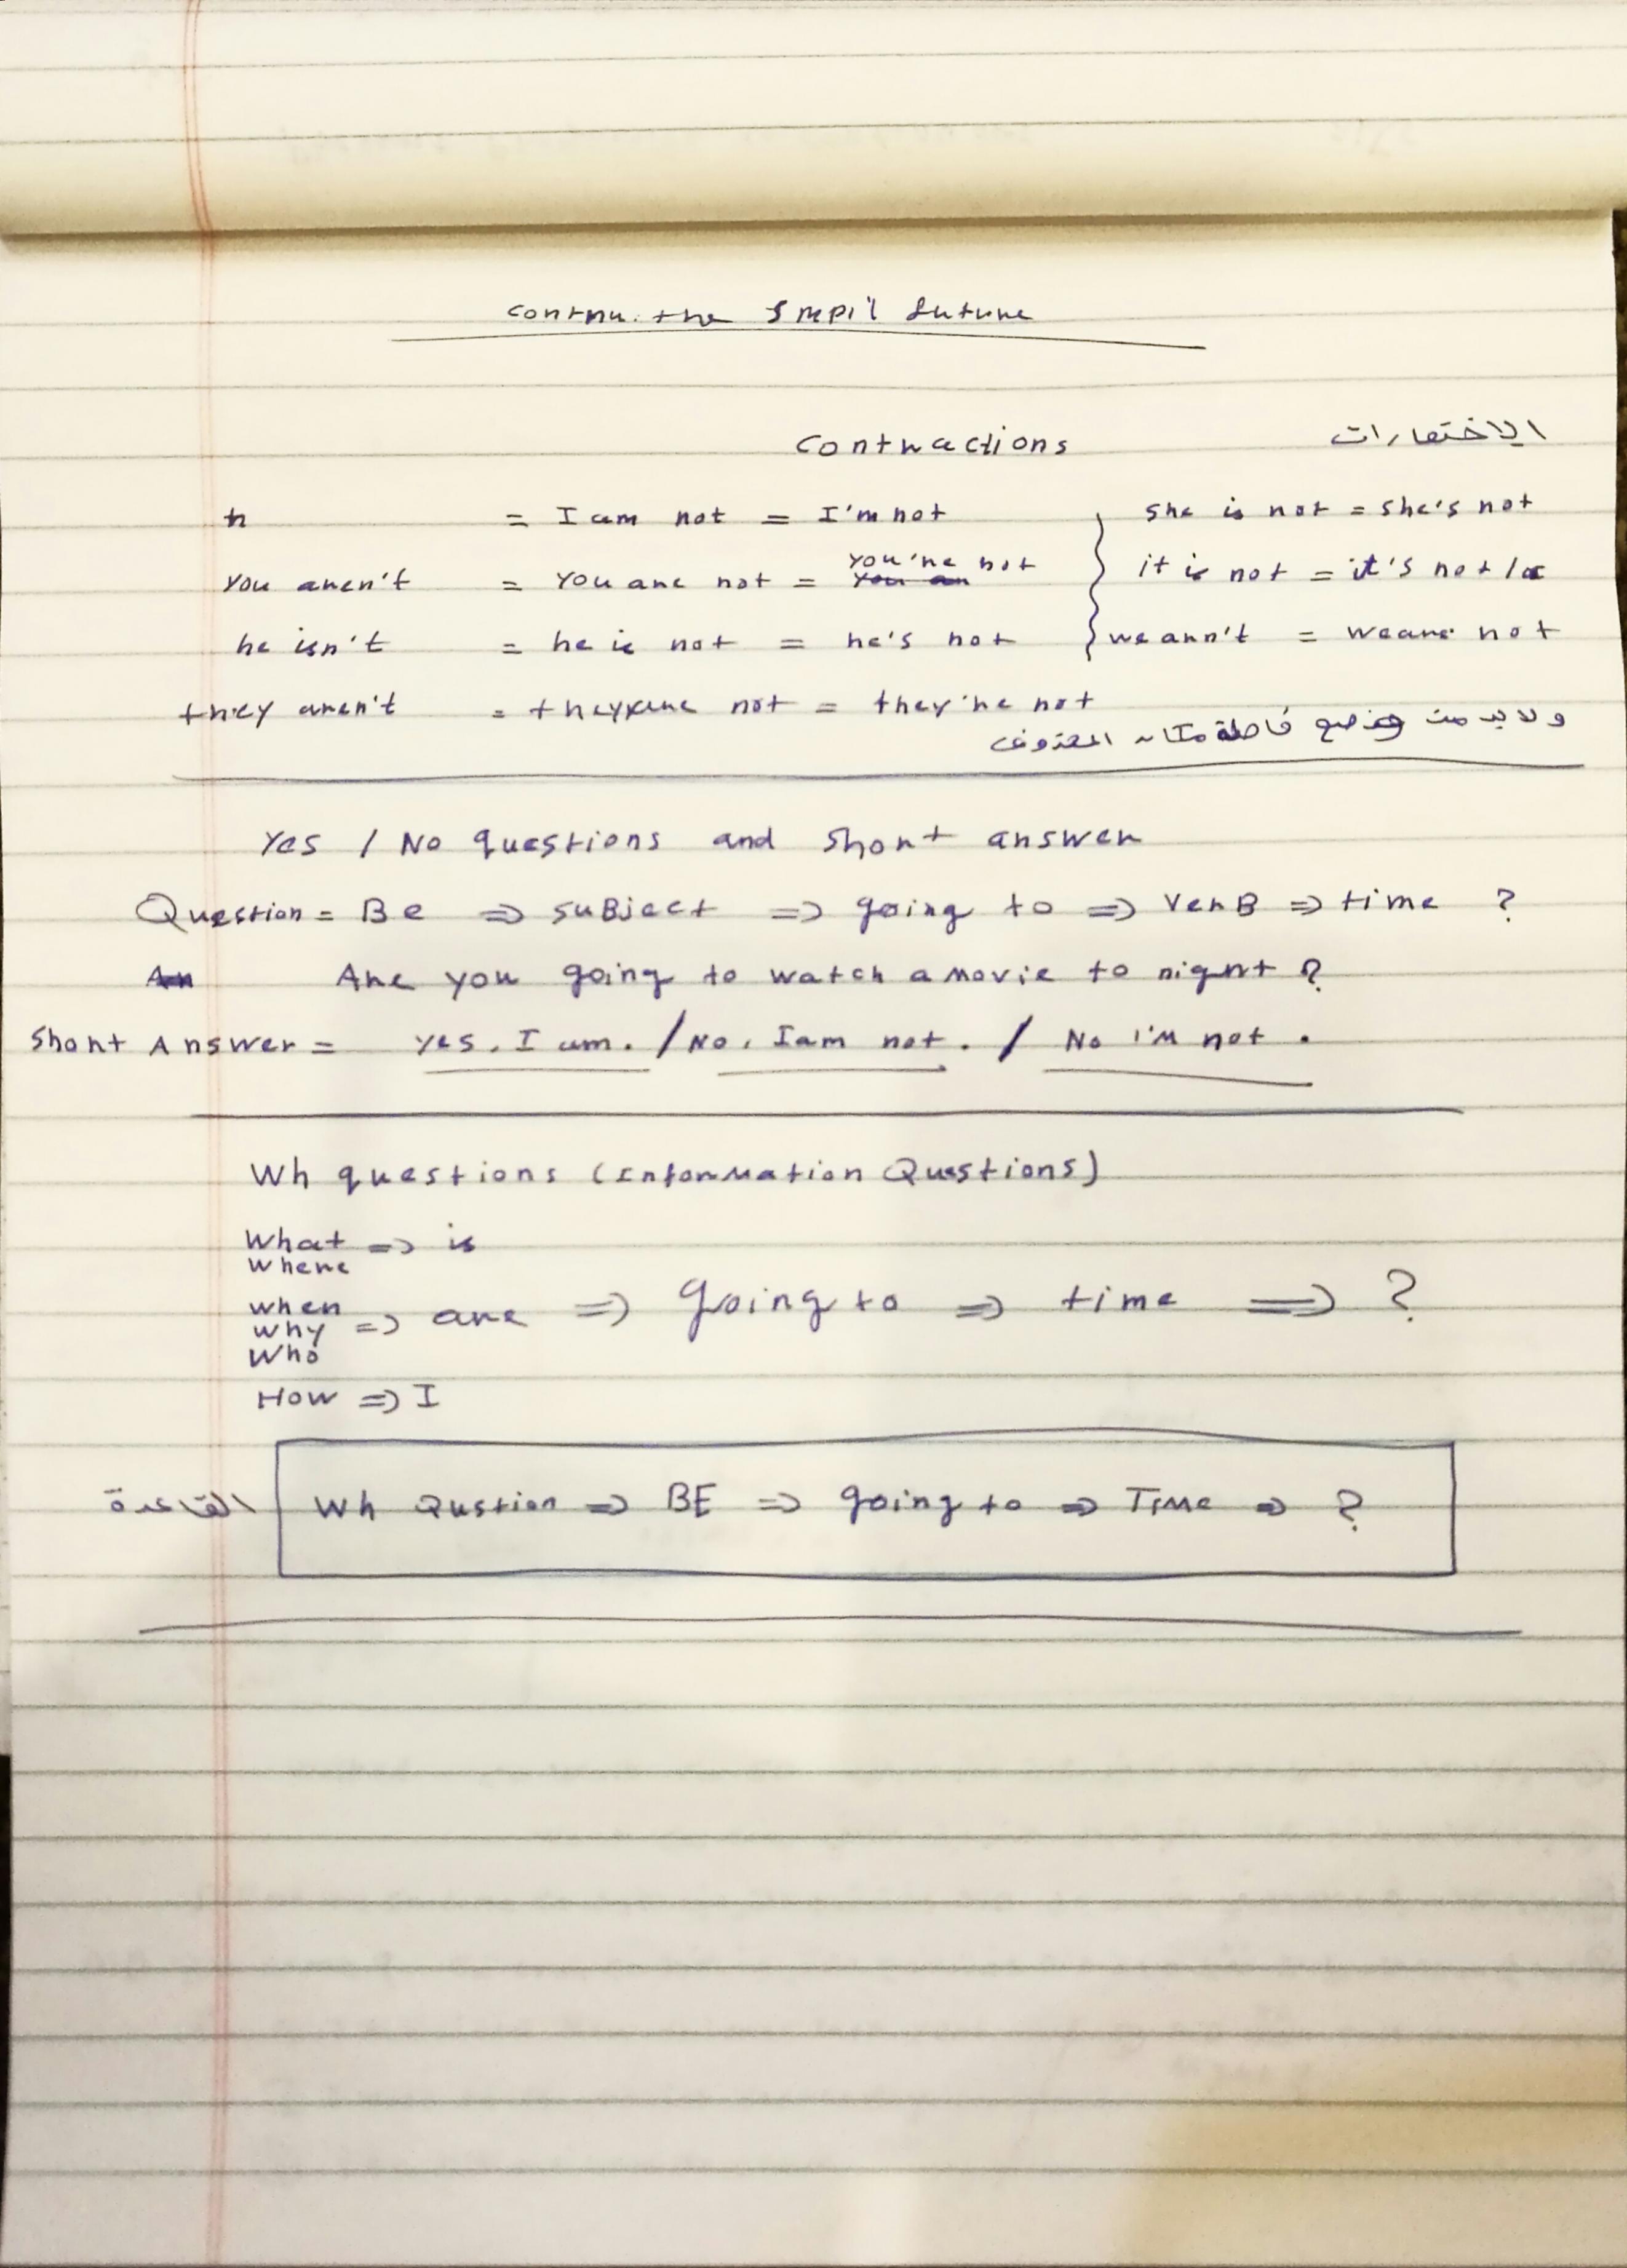 contnu. the Smpil future
Contractions الاختصارات
= I am not = I'm not } she is not = she's not
you aren't = You are not = you're not } it is not = it's not
he isn't = he is not = he's not } we arn't = we are not
they aren't = they are not = they're not
ولابد من وضع فاصلة مكان المحذوف
Yes / No questions and short answer
Question = Be => suBject => going to => verB => time ?
Are you going to watch a movie to night ?
Short Answer = yes. I am. / No. I am not. / No I'M not.
Wh questions (InforMation Questions)
What => is
Where
when
why => are => Going to => time => ?
Who
How => I
القاعدة Wh Qustion => BE => going to => TiMe => ?